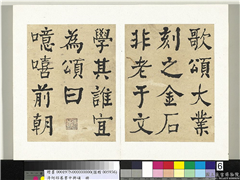 歌頌大業
刻之金石
非老于文
學其誰宜
為頌曰
噫嘻前朝